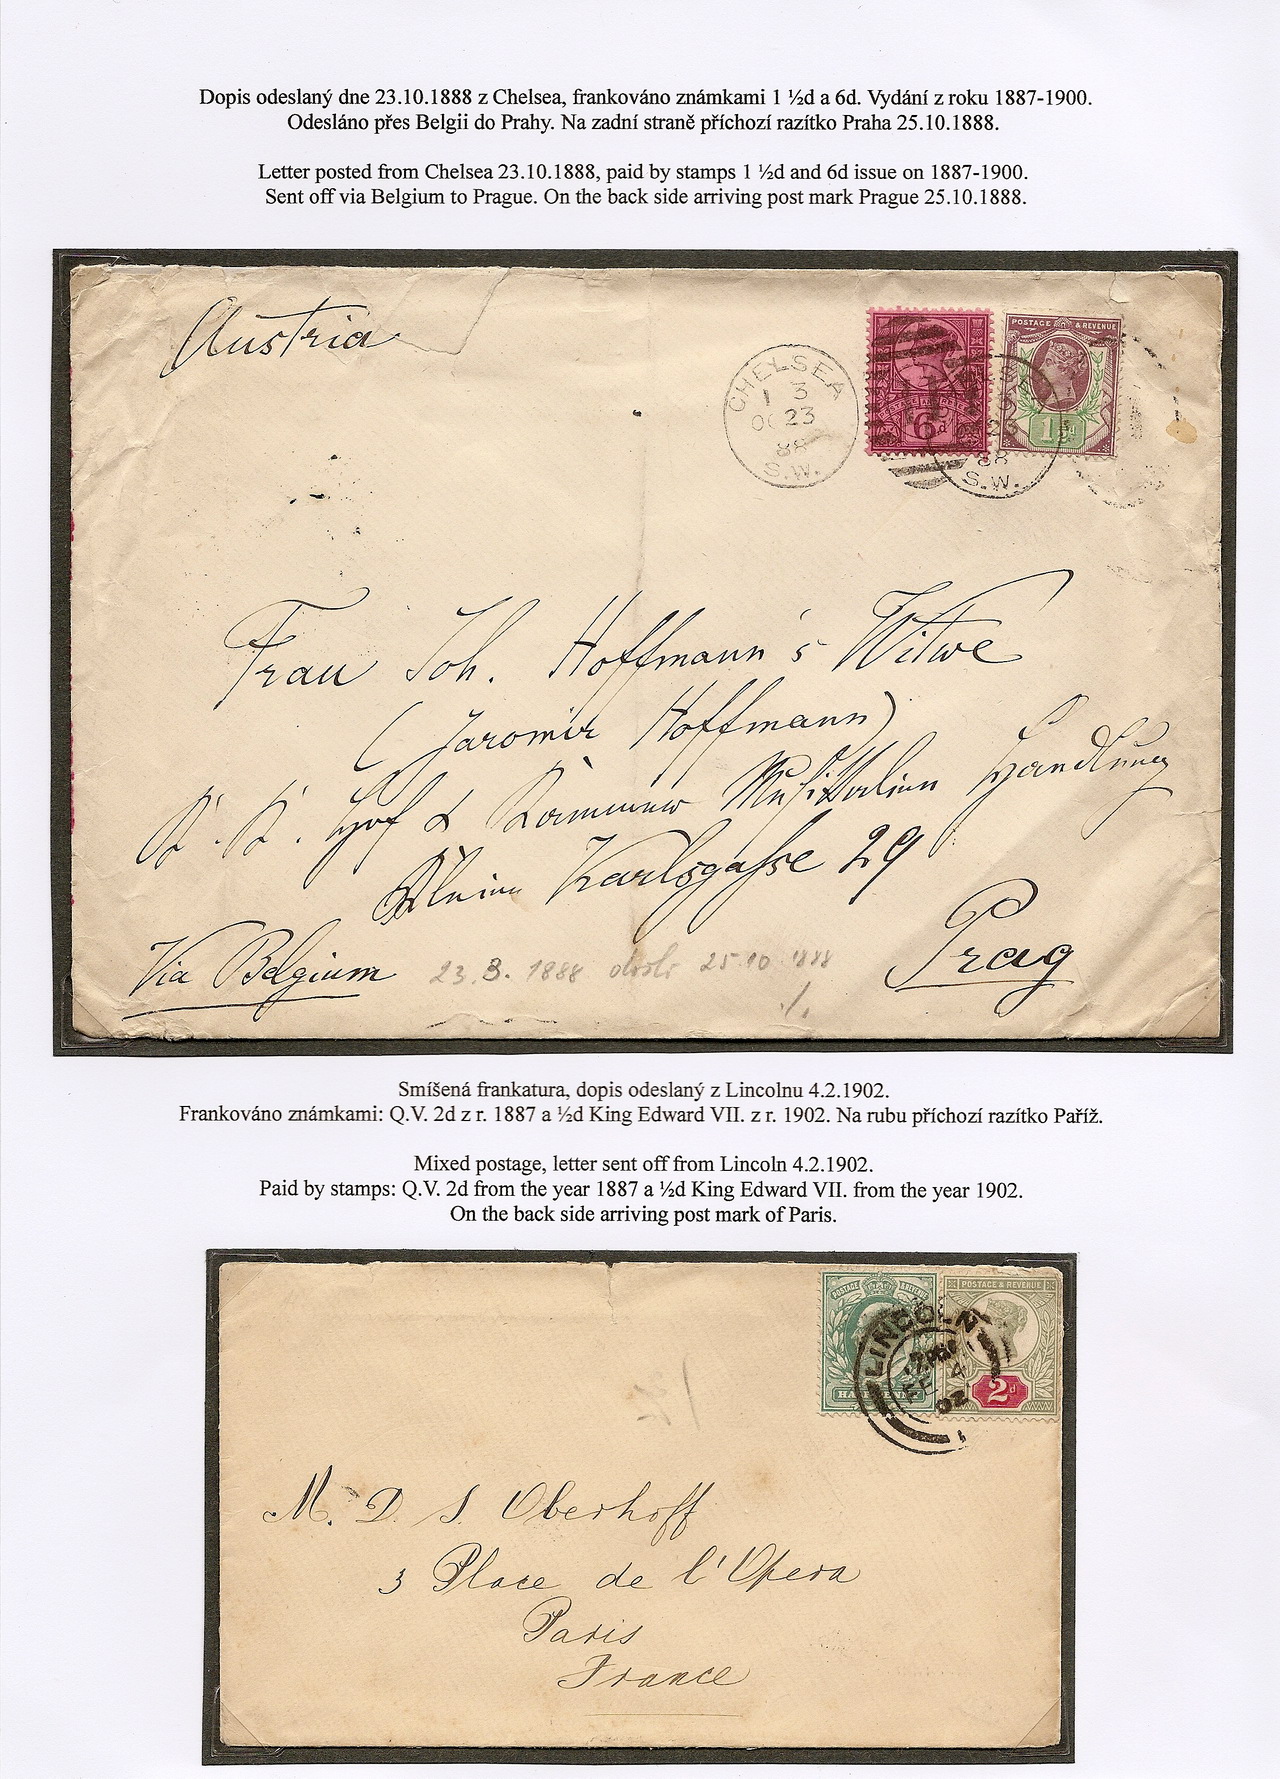 Dopis odeslaný dne 23.10.1888 z Chelsea, frankováno známkami 1 ½d a 6d. Vydání z roku 1887-1900.
Odesláno přes Belgii do Prahy. Na zadní straně příchozí razítko Praha 25.10.1888.
Letter posted from Chelsea 23.10.1888, paid by stamps 1 ½d and 6d issue on 1887-1900.
Sent off via Belgium to Prague. On the back side arriving post mark Prague 25.10.1888.
Austria
CHELSEA
1 3
OC 23
88
S.W.
6d
POSTAGE & REVENUE
1½d
88
S.W.
Frau Joh. Hoffmann's Witwe
(Jaromir Hoffmann)
K. K. Hof & Kammer Musikalien Handlung
Kleine Karlsgasse 29
Prag
Via Belgium
23. 8. 1888 došlo 25 10 1888
Smíšená frankatura, dopis odeslaný z Lincolnu 4.2.1902.
Frankováno známkami: Q.V. 2d z r. 1887 a ½d King Edward VII. z r. 1902. Na rubu příchozí razítko Paříž.
Mixed postage, letter sent off from Lincoln 4.2.1902.
Paid by stamps: Q.V. 2d from the year 1887 a ½d King Edward VII. from the year 1902.
On the back side arriving post mark of Paris.
POSTAGE & REVENUE
2d
LINCOLN
FE 4
02
M. D. S. Oberhoff
3 Place de l'Opera
Paris
France